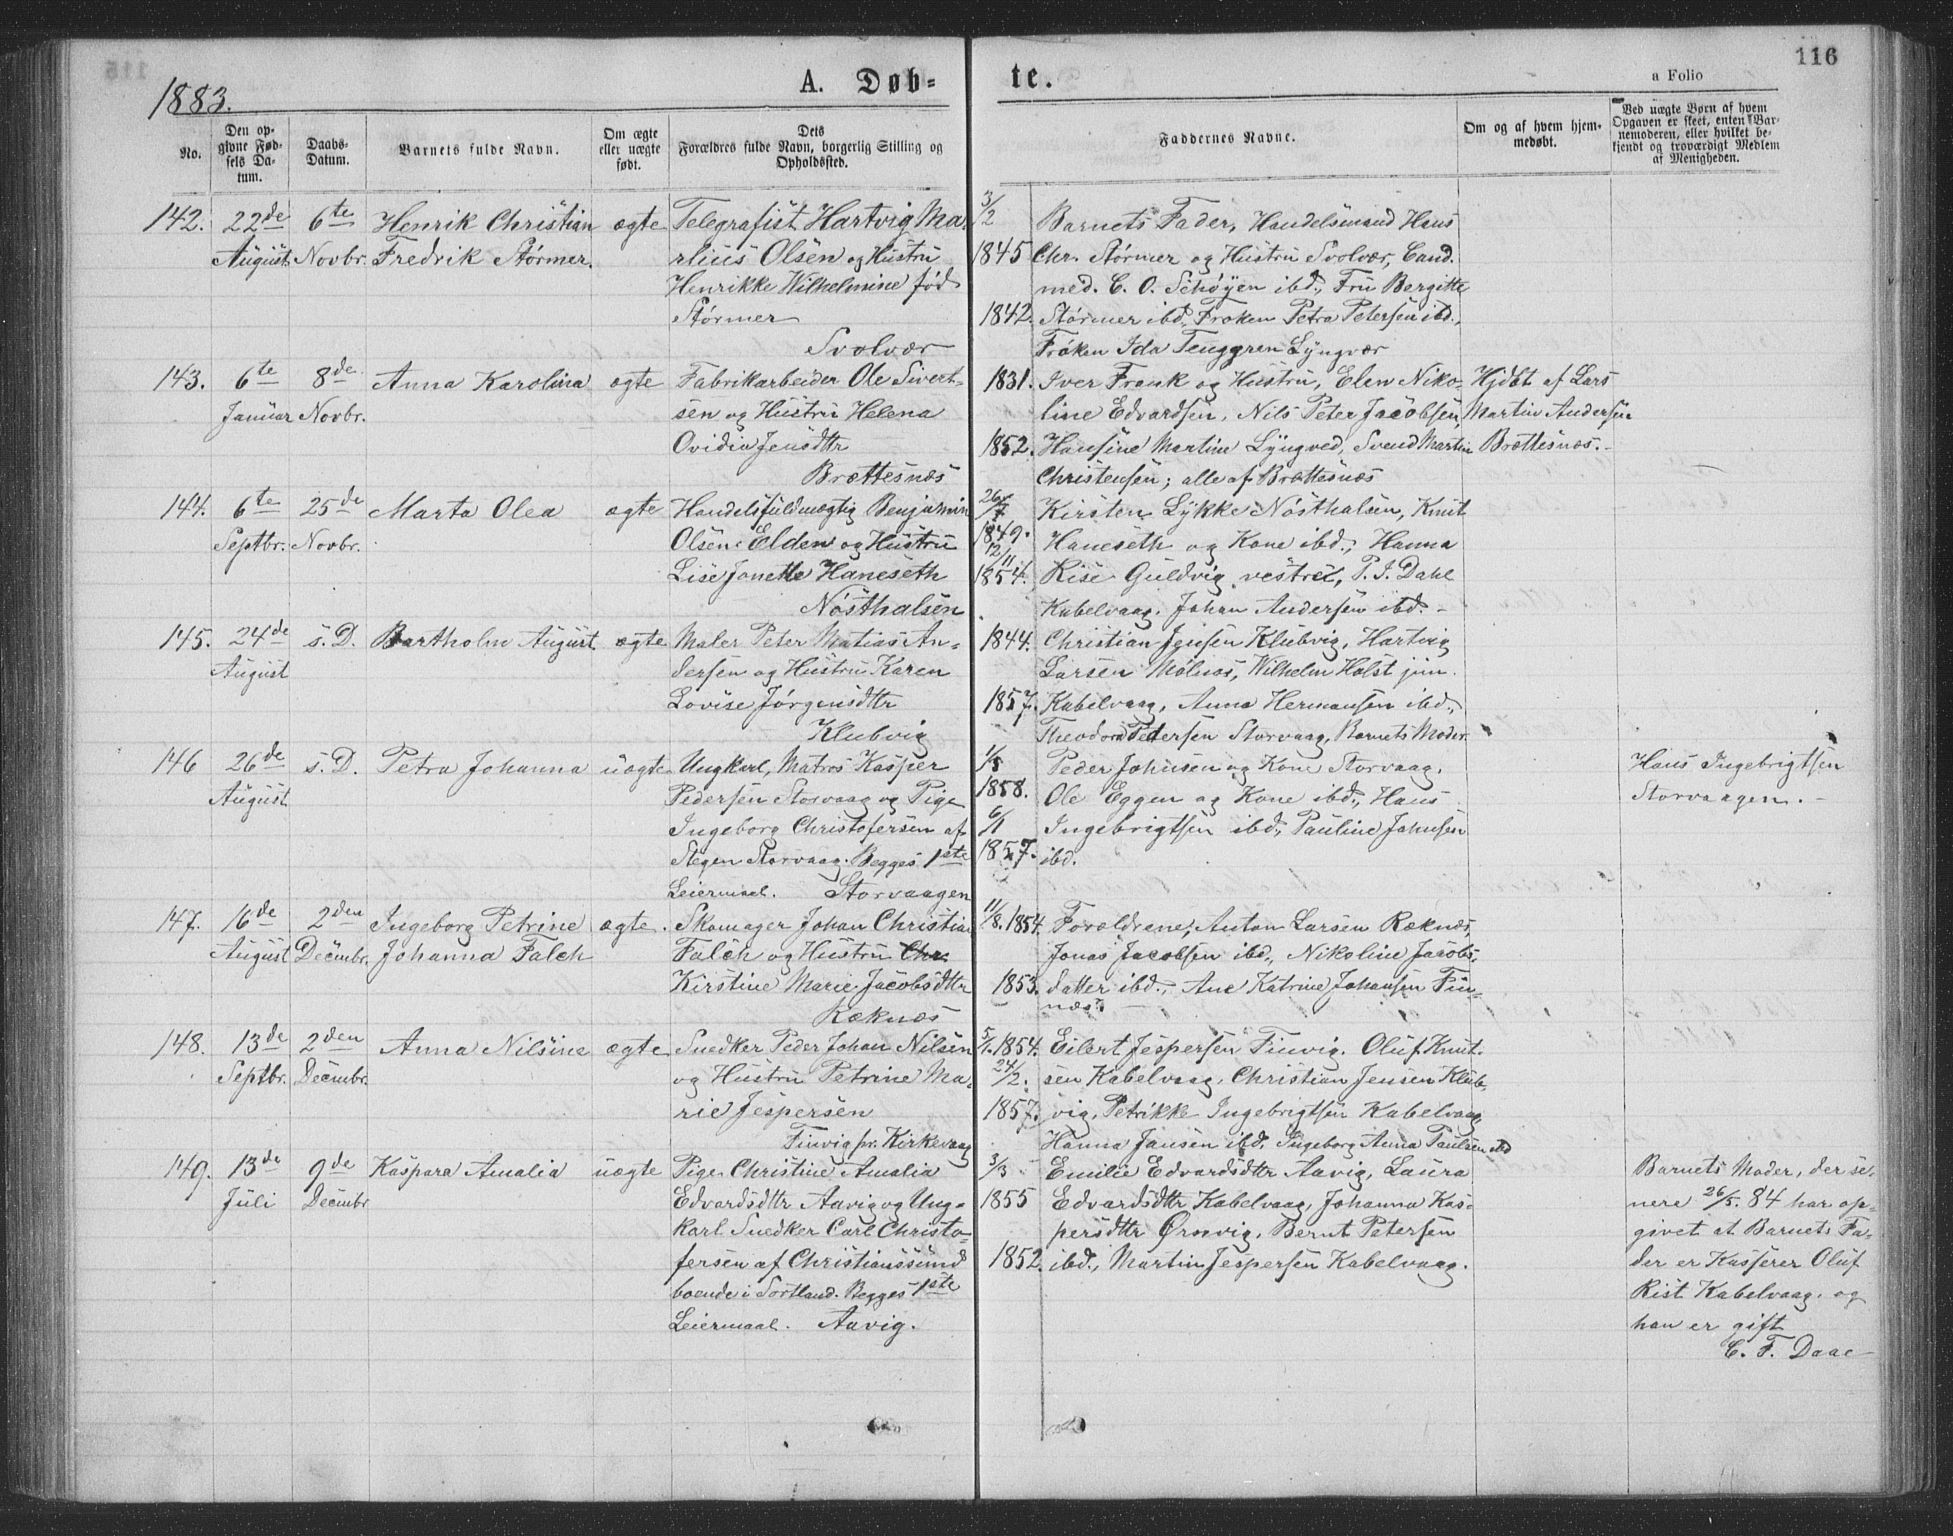 116
1883.
A. Døb-
te.
a Folio
No.
Den op-
givne Fød-
sels Da-
tum.
Daabs-
Datum.
Barnets fulde Navn.
Om ægte
eller uægte
født.
Dets
Forældres fulde Navn, borgerlig Stilling og
Opholdssted.
Faddernes Navne.
Om og af hvem hjem-
medøbt.
Ved uægte Børn af hvem
Opgaven er skeet, enten Bar-
nemoderen, eller hvilket be-
kjendt og troværdigt Medlem
af Menigheden.
142.
22de
August
6te
Novbr.
Henrik Christian
Fredrik Størmer.
ægte
Telegrafist Hartvig Ma-
rlius Olsen og Hustru
Henrikke Wilhelmine fød
Størmer
Svolvær
3/2
1845
1842.
Barnets Fader, Handelsmand Hans
Chr. Størmer og Hustru Svolvær, Cand.
med. C. O. Schöyen ibd., Fru Bergitte
Størmer ibd., Frøken Petra Petersen ibd.,
Frøken Ida Tenggren Lyngvær
143.
6te
Januar
8de
Novbr.
Anna Karolina
ægte
Fabrikarbeider Ole Sivert-
sen og Hustru Helena
Ovidia Jensdttr
Brættesnæs
1831.
1852.
Iver Frank og Hustru, Elen Niko-
line Edvardsen, Nils Peter Jacobsen,
Hansine Martine Lyngved, Svend Martin
Christensen; alle af Brættesnæs
Hjdbt af Lars
Martin Andersen
Brættesnæs.
144.
6te
Septbr.
25de
Novbr.
Marta Olea
ægte
Handelsfuldmægtig Benjamin
Olsen Elden og Hustru
Lise Jonette Haneseth
Nösthalsen
26/7
1849.
12/11
1854.
Kirsten Lykke Nösthalsen, Knut
Haneseth og Kone ibd., Hanna
Rise Guldvig vestre, P. J. Dahl
Kabelvaag, Johan Andersen ibd.
145.
24de
August
s. D.
Bartholm August
ægte
Maler Peter Matias An-
dersen og Hustru Karen
Lovise Jørgensdttr
Klubvig
1844.
1857.
Christian Jensen Klubvig, Hartvig
Larsen Mølnæs, Wilhelm Holst jun.
Kabelvaag, Anna Hermansen ibd.,
Theodora Pedersen Storvaag, Barnets Moder.
146
26de
August
s. D.
Petra Johanna
uægte
Ungkarl, Matros Kasper
Pedersen Storvaag og Pige
Ingeborg Christofersen af
Stegen Storvaag. Begges 1ste
Leiermaal. Storvaagen
1/5
1858.
6/1
1857.
Peder Johnsen og Kone Storvaag,
Ole Eggen og Kone ibd., Hans
Ingebrigtsen ibd., Pauline Johnsen
ibd.
Hans Ingebrigtsen
Storvaagen.
147.
16de
August
2den
Decmbr.
Ingeborg Petrine
Johanna Falch
ægte.
Skomager Johan Christian
Falch og Hustru Chr.
Kirstine Marie Jacobsdttr
Ræknæs
11/8. 1854.
1853.
Forældrene, Anton Larsen Ræknæs,
Jonas Jacobsen ibd., Nikoline Jacobs-
datter ibd., Ane Katrine Johansen Fin-
næs.
148.
13de
Septbr.
2den
Decmbr.
Anna Nilsine
ægte
Snedker Peder Johan Nilsen
og Hustru Petrine Ma-
rie Jespersen
Finvig pr. Kirkevaag
5/1. 1854.
24/2.
1857.
Eilert Jespersen Finvig. Oluf Knut-
sen Kabelvaag, Christian Jensen Klub-
vig, Petrikke Ingebrigtsen Kabelvaag
Hanna Jansen ibd, Ingeborg Anna Paulsen ibd
149.
13de
Juli
9de
Decmbr
Kaspara Amalia
uægte
Pige Christine Amalia
Edvardsdttr Aavig og Ung-
karl Snedker Carl Christo-
fersen af Christianssund
boende i Sortland. Begges 1ste
Leiermaal. Aavig.
3/3
1855
1852.
Emilie Edvardsdttr Aavig, Laura
Edvardsdttr Kabelvaag, Johanna Kas-
persdttr Ørsvig, Bernt Petersen
ibd., Martin Jespersen Kabelvaag.
Barnets Moder, der se-
nere 26/5. 84 har op-
givet at Barnets Fa-
der er Kasserer Oluf
Rist Kabelvaag, og
han er gift
C. F. Daae